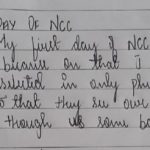 DAY OF NCC
My first day of NCC
because on that I
selected in only phy
so that they see our
though us some ba